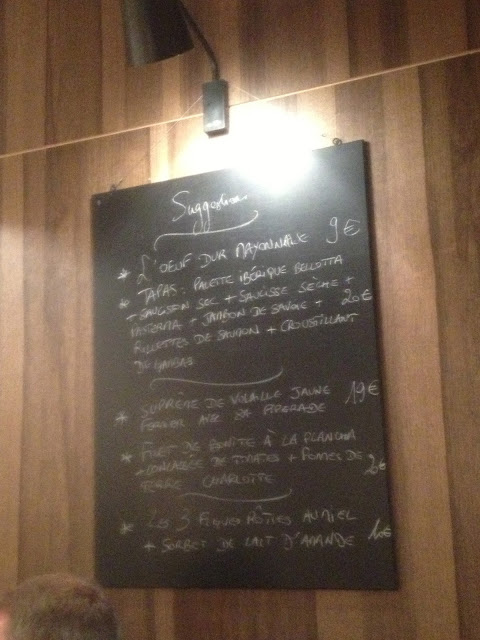 Suggestion
* L'OEUF DUR MAYONNAISE 9€
* TAPAS : PALETTE IBÉRIQUE BELLOTTA
+ SAUCISSON SEC + SAUCISSE SÈCHE +
PASTERMA + JAMBON DE SAVOIE + 20€
RILLETTES DE SAUMON + CROUSTILLANT
DE GAMBAS
* SUPRÊME DE VOLAILLE JAUNE 19€
FERMIER AVEC SA PIPERADE
* FILET DE BONITE À LA PLANCHA
+ CONCASSÉE DE TOMATES + POMMES DE
TERRE CHARLOTTE
* LES 3 FIGUES RÔTIES AU MIEL
+ SORBET DE LAIT D'AMANDE 10€